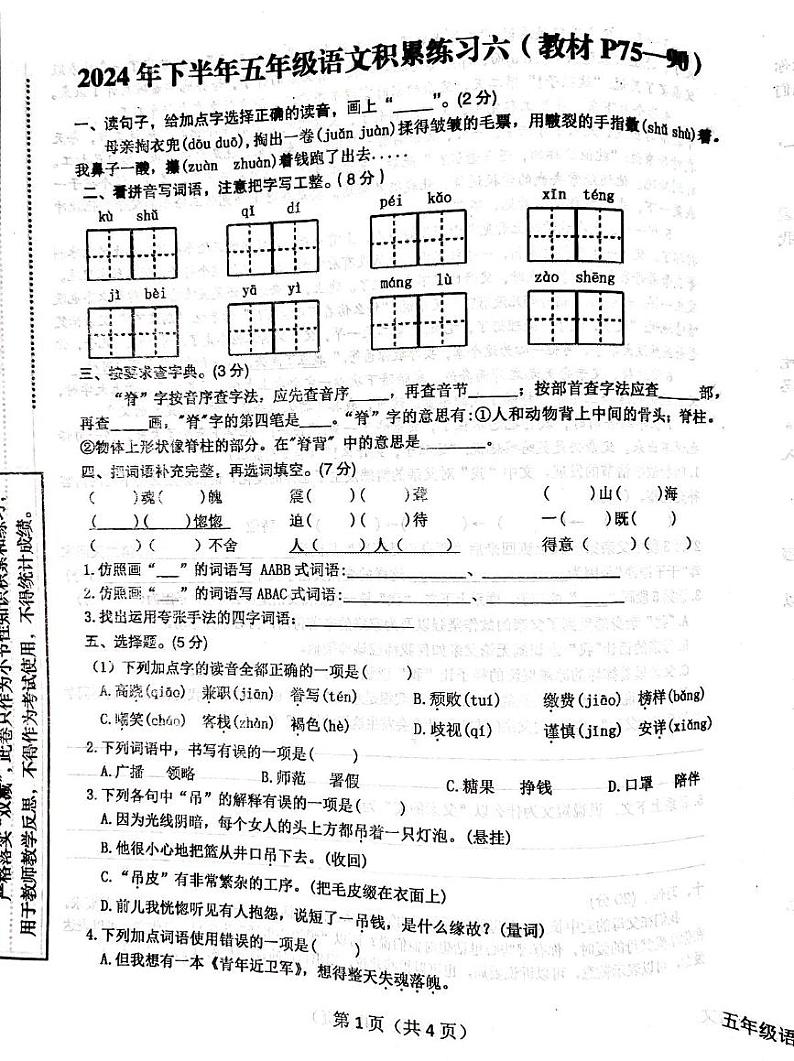 2024 年下半年五年级语文积累练习六（教材 P75—90）
一、读句子，给加点字选择正确的读音，画上“_____”。(2 分)
母亲掏衣兜(dōu duō),掏出一卷(juǎn juàn)揉得皱皱的毛票，用皲裂的手指数(shǔ shù)着。
我鼻子一酸，攥(zuàn zhuàn)着钱跑了出去.....
二、看拼音写词语，注意把字写工整。（8 分）
kù shǔ qī dí péi kǎo xīn téng
jì bèi yā yì máng lù zào shēng
三、按要求查字典。(3 分)
“脊”字按音序查字法，应先查音序_____，再查音节_____；按部首查字法应查_____部，
再查____画，"脊"字的第四笔是____。“脊”字的意思有:①人和动物背上中间的骨头；脊柱。
②物体上形状像脊柱的部分。在"脊背" 中的意思是________。
四、把词语补充完整，再选词填空。(7 分)
( )魂( )魄 震( )( )聋 ( )山( )海
( )( )惚惚 迫( )( )待 一( )既( )
( )( )不舍 人( )人( ) 得意( )( )
1.仿照画“___”的词语写 AABB 式词语:____________、____________
2.仿照画“___”的词语写 ABAC 式词语:____________、____________
3.找出运用夸张手法的四字词语:____________
五、选择题。(5 分)
(1) 下列加点字的读音全都正确的一项是( )
A.高跷(qiāo) 兼职(jiān) 誊写(tén) B.颓败(tuí) 缴费(jiāo) 榜样(bǎng)
C.嘲笑(cháo) 客栈(zhàn) 褐色(hè) D.歧视(qí) 谨慎(jǐng) 安详(xiǎng)
2.下列词语中，书写有误的一项是( )
A.广播 领略 B.师范 署假 C.糖果 挣钱 D.口罩 陪伴
3.下列各句中“吊”的解释有误的一项是( )
A.因为光线阴暗，每个女人的头上方都吊着一只灯泡。(悬挂)
B.他很小心地把篮从井口吊下去。(收回)
C.“吊皮”有非常繁杂的工序。(把毛皮缀在衣面上)
D.前儿我恍惚听见有人抱怨，说短了一吊钱，是什么缘故？(量词)
4.下列加点词语使用错误的一项是( )
A.但我想有一本《青年近卫军》，想得整天失魂落魄。
第 1 页（共 4 页）
五年级语
严格落实“双减”，此卷只作为小节性知识积累和练习，
用于教师教学反思，不得作为考试使用，不得统计成绩。